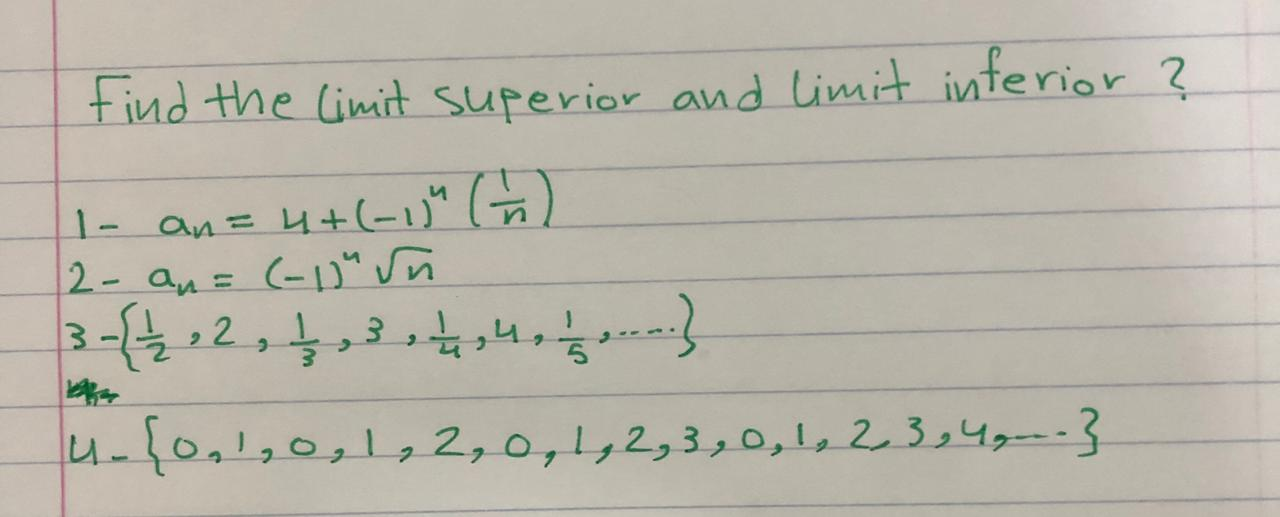 Find the limit superior and limit inferior ?
1- aₙ = 4+(-1)ⁿ (1/n)
2- aₙ = (-1)ⁿ √n
3-{1/2, 2, 1/3, 3, 1/4, 4, 1/5, .....}
4-{0, 1, 0, 1, 2, 0, 1, 2, 3, 0, 1, 2, 3, 4, ....}